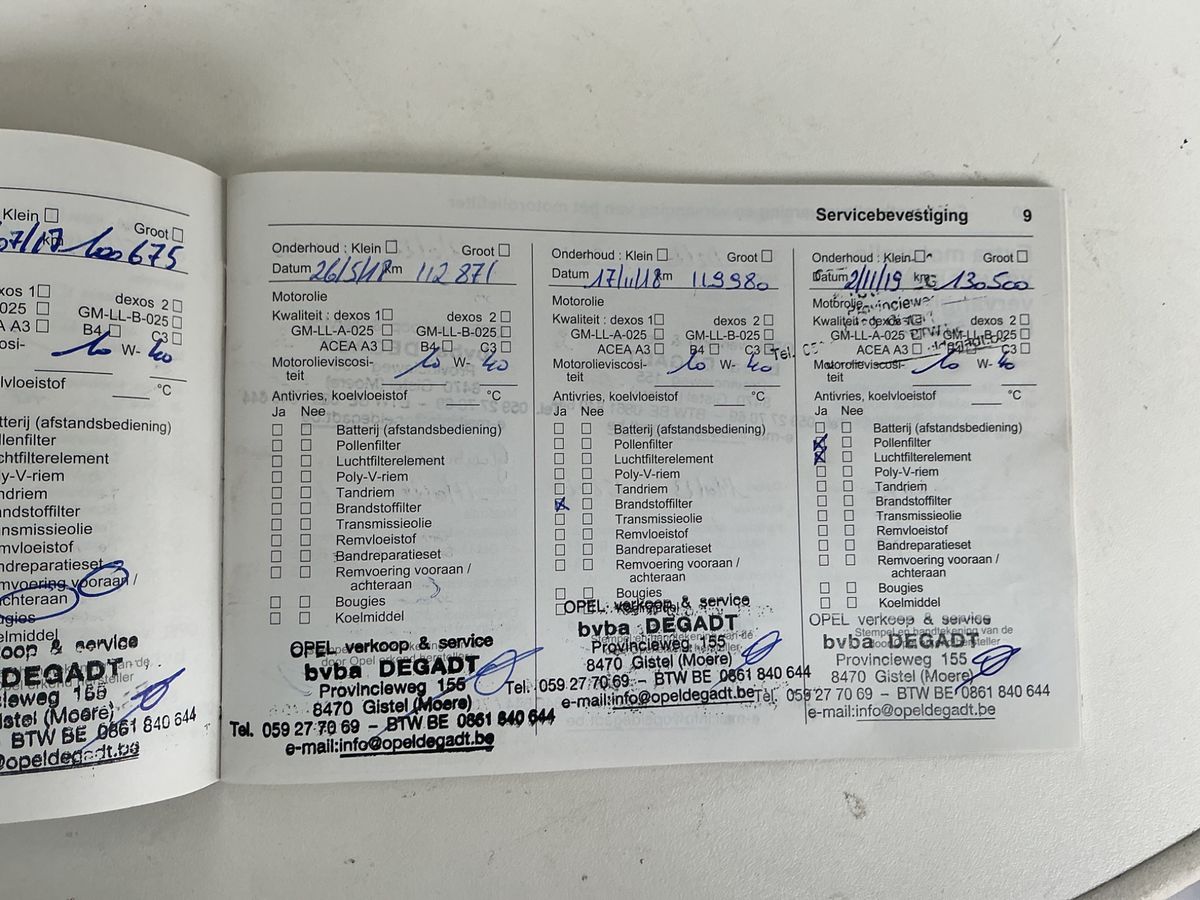 Klein
Groot
07/17 km 100675
dexos 1
dexos 2
GM-LL-B-025
ACEA A3
B4
C3
10 W- 40
koelvloeistof
°C
Batterij (afstandsbediening)
Pollenfilter
Luchtfilterelement
Poly-V-riem
Tandriem
Brandstoffilter
Transmissieolie
Remvloeistof
Bandreparatieset
Remvoering vooraan /
achteraan
Bougies
Koelmiddel
DEGADT
155
BTW BE 0861 840 644
Servicebevestiging 9
Onderhoud : Klein Groot
Datum 26/5/18 km 112 871
Motorolie
Kwaliteit : dexos 1 dexos 2
GM-LL-A-025 GM-LL-B-025
ACEA A3 B4 C3
Motorolieviscosi- 10 W- 40
teit
Antivries, koelvloeistof °C
Ja Nee
Batterij (afstandsbediening)
Pollenfilter
Luchtfilterelement
Poly-V-riem
Tandriem
Brandstoffilter
Transmissieolie
Remvloeistof
Bandreparatieset
Remvoering vooraan /
achteraan
Bougies
Koelmiddel
OPEL verkoop & service
bvba DEGADT
Provincieweg 155
8470 Gistel (Moere)
Tel. 059 27 70 69 – BTW BE 0861 840 644
e-mail:info@opeldegadt.be
Onderhoud : Klein Groot
Datum 17/11/18 km 119980
Motorolie
Kwaliteit : dexos 1 dexos 2
GM-LL-A-025 GM-LL-B-025
ACEA A3 B4 C3
Motorolieviscosi- 10 W- 40
teit
Antivries, koelvloeistof °C
Ja Nee
Batterij (afstandsbediening)
Pollenfilter
Luchtfilterelement
Poly-V-riem
Tandriem
Brandstoffilter
Transmissieolie
Remvloeistof
Bandreparatieset
Remvoering vooraan /
achteraan
Bougies
OPEL verkoop & service
bvba DEGADT
Provincieweg 155
8470 Gistel (Moere)
Tel. 059 27 70 69 – BTW BE 0861 840 644
e-mail:info@opeldegadt.be
Onderhoud : Klein Groot
Datum 2/11/19 km 130500
Motorolie
Kwaliteit : dexos 1 dexos 2
GM-LL-A-025 GM-LL-B-025
ACEA A3 B4 C3
Motorolieviscosi- 10 W- 40
teit
Antivries, koelvloeistof °C
Ja Nee
Batterij (afstandsbediening)
Pollenfilter
Luchtfilterelement
Poly-V-riem
Tandriem
Brandstoffilter
Transmissieolie
Remvloeistof
Bandreparatieset
Remvoering vooraan /
achteraan
Bougies
Koelmiddel
OPEL verkoop & service
Stempel en handtekening van de
bvba DEGADT
Provincieweg 155
8470 Gistel (Moere)
Tel. 059 27 70 69 – BTW BE 0861 840 644
e-mail:info@opeldegadt.be